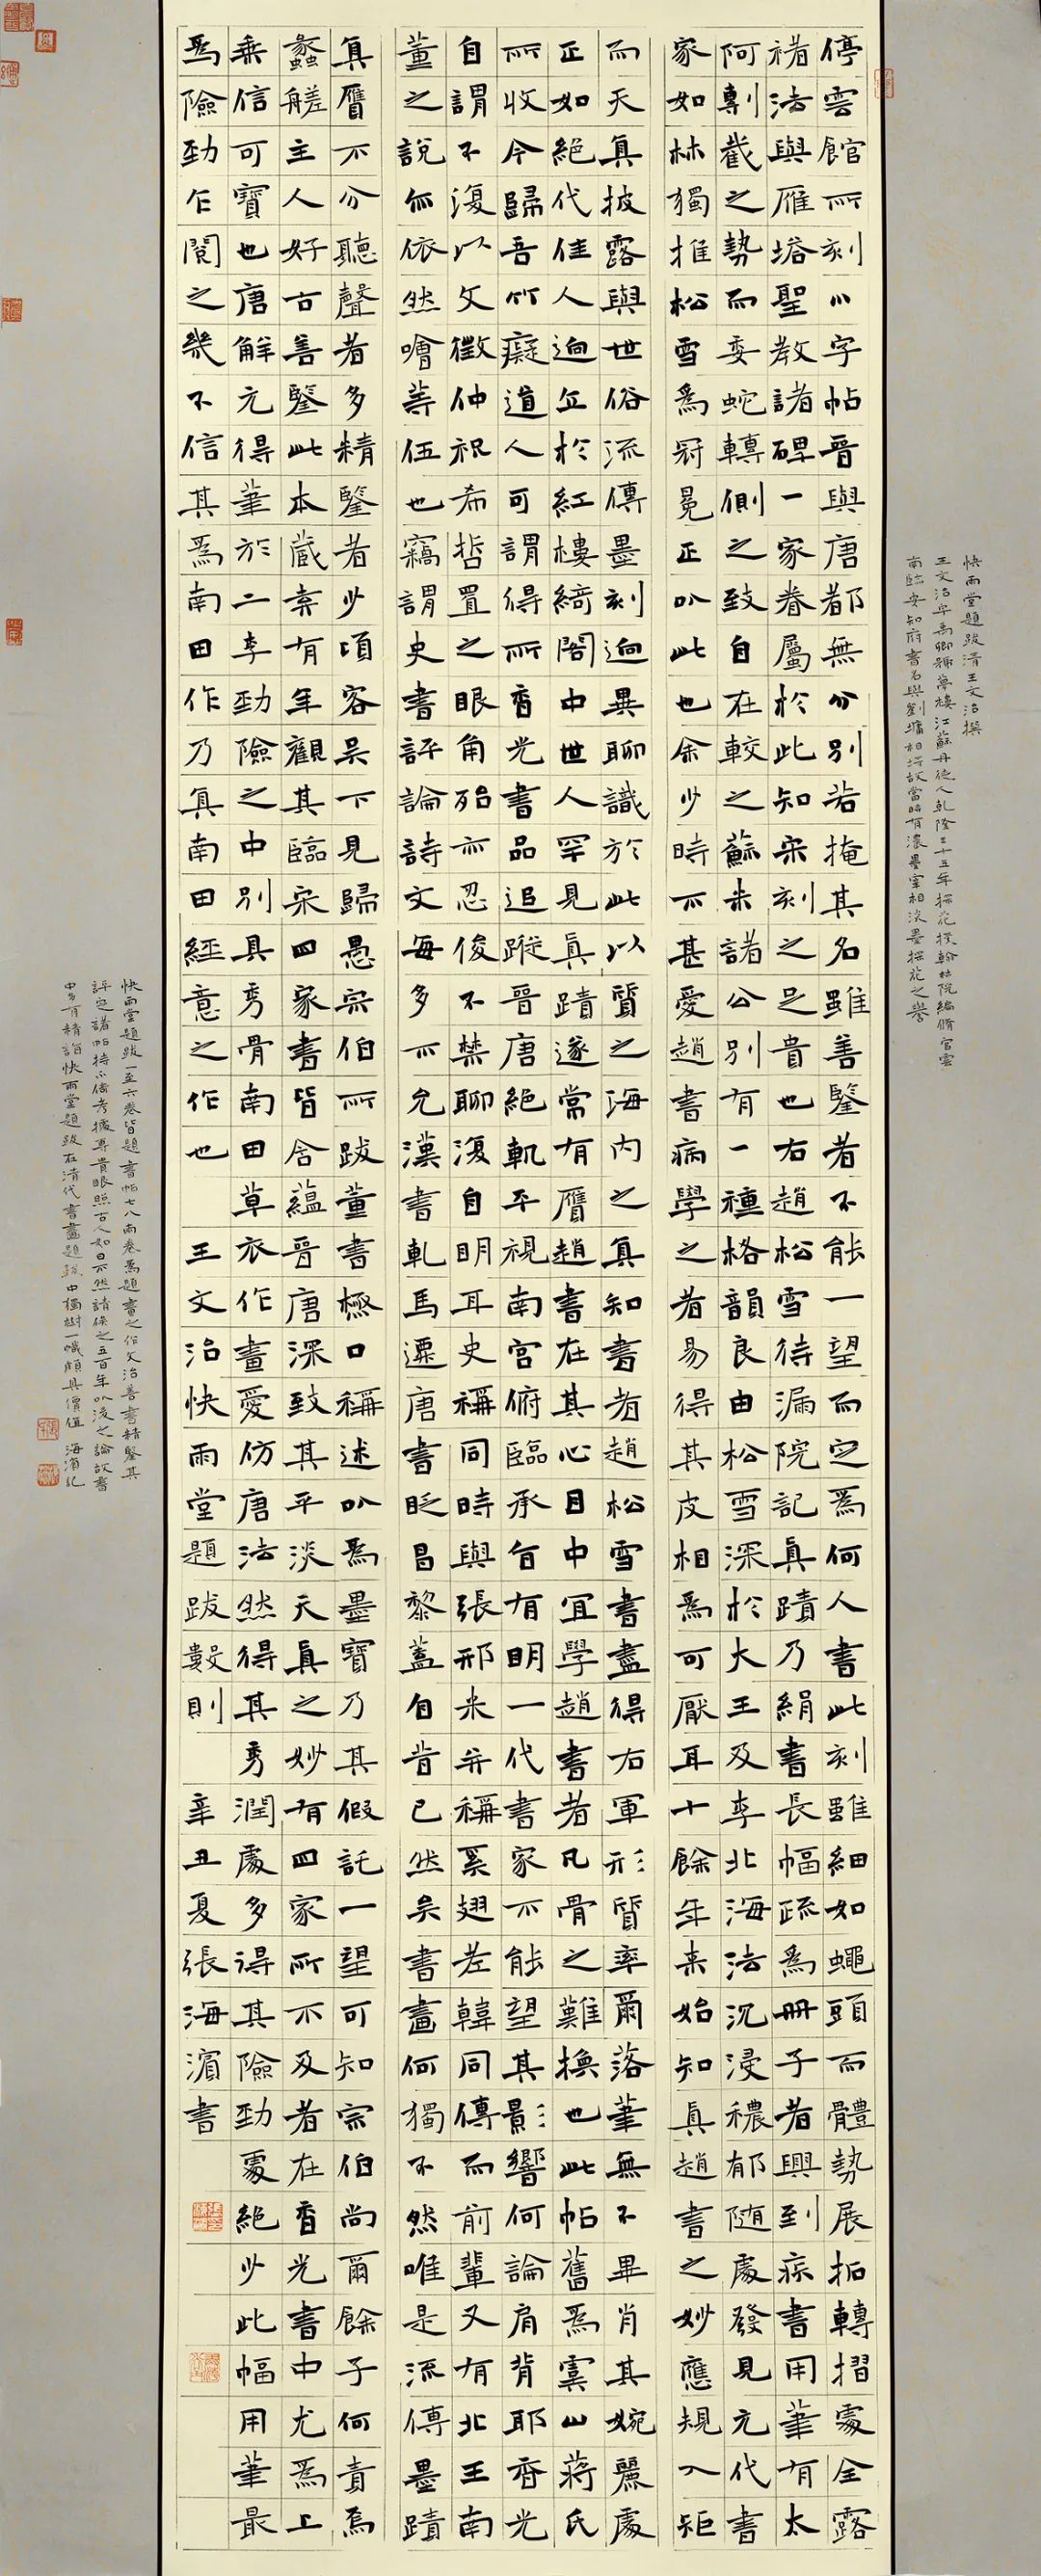 快雨堂題跋清王文治撰
王文治字禹卿號夢樓江蘇丹徒人乾隆三十五年探花授翰林院編脩官雲
南臨安知府書名與劉墉相埒故當時有濃墨宰相淡墨探花之譽
停雲館所刻小字帖晉與唐都無分別若掩其名雖善鑒者不能一望而定為何人書此刻雖細如蠅頭而體勢展拓轉摺處全露
褚法與雁塔聖教諸碑一家眷屬於此知宋刻之足貴也右趙松雪待漏院記真蹟乃絹書長幅疏為冊子者興到疾書用筆有太
阿剸截之勢而委蛇轉側之致自在較之蘇米諸公別有一種格韻良由松雪深於大王及李北海法沉浸穠郁隨處發見元代書
家如林獨推松雪為冠冕正以此也余少時不甚愛趙書病學之者易得其皮相為可厭耳十餘年來始知真趙書之妙應規入矩
而天真披露與世俗流傳墨刻迥異聊識於此以質之海內之真知書者趙松雪書盡得右軍形質率爾落筆無不畢肖其婉麗處
正如絕代佳人迥立於紅樓綺閣中世人罕見真蹟遂常有贗趙書在其心目中宜學趙書者凡骨之難換也此帖舊為虞山蔣氏
所收今歸吾竹癡道人可謂得所香光書品追蹤晉唐絕軌平視南宮俯臨承旨有明一代書家不能望其影響何論肩背耶香光
自謂不復以文徵仲祝希哲置之眼角殆亦忍俊不禁聊復自明耳史稱同時與張邢米并稱奚翅老韓同傳而前輩又有北王南
董之說亦依然噲等伍也竊謂史書評論詩文每多不允漢書軋馬遷唐書眨昌黎蓋自昔已然矣書畫何獨不然唯是流傳墨蹟
真贗不分聽聲者多精鑒者少頃客吳下見歸愚宗伯所跋董書極口稱述以為墨寶乃其假託一望可知宗伯尚爾餘子何責焉
蠡艖主人好古善鑒此本藏弆有年觀其臨宋四家書皆含蘊晉唐深致其平淡天真之妙有四家所不及者在香光書中尤為上
乘信可寶也唐解元得筆於二李勁險之中別具秀骨南田草衣作畫愛仿唐法然得其秀潤處多得其險勁處絕少此幅用筆最
為險勁乍閱之幾不信其為南田作乃真南田經意之作也 王文治快雨堂題跋數則 辛丑夏張海濱書
快雨堂題跋一至六卷皆題書帖七八兩卷為題畫之作文治善書精鑒其
評定諸帖持不倚考據專貴眼照古人如日不然請俟之五百年以後之論故書
中多有精詣快雨堂題跋在清代書畫題跋中獨樹一幟頗具價值 海濱記